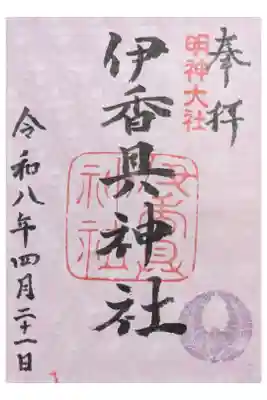 奉拝
明神大社
伊香具神社
伊香具神社
令和八年四月二十一日